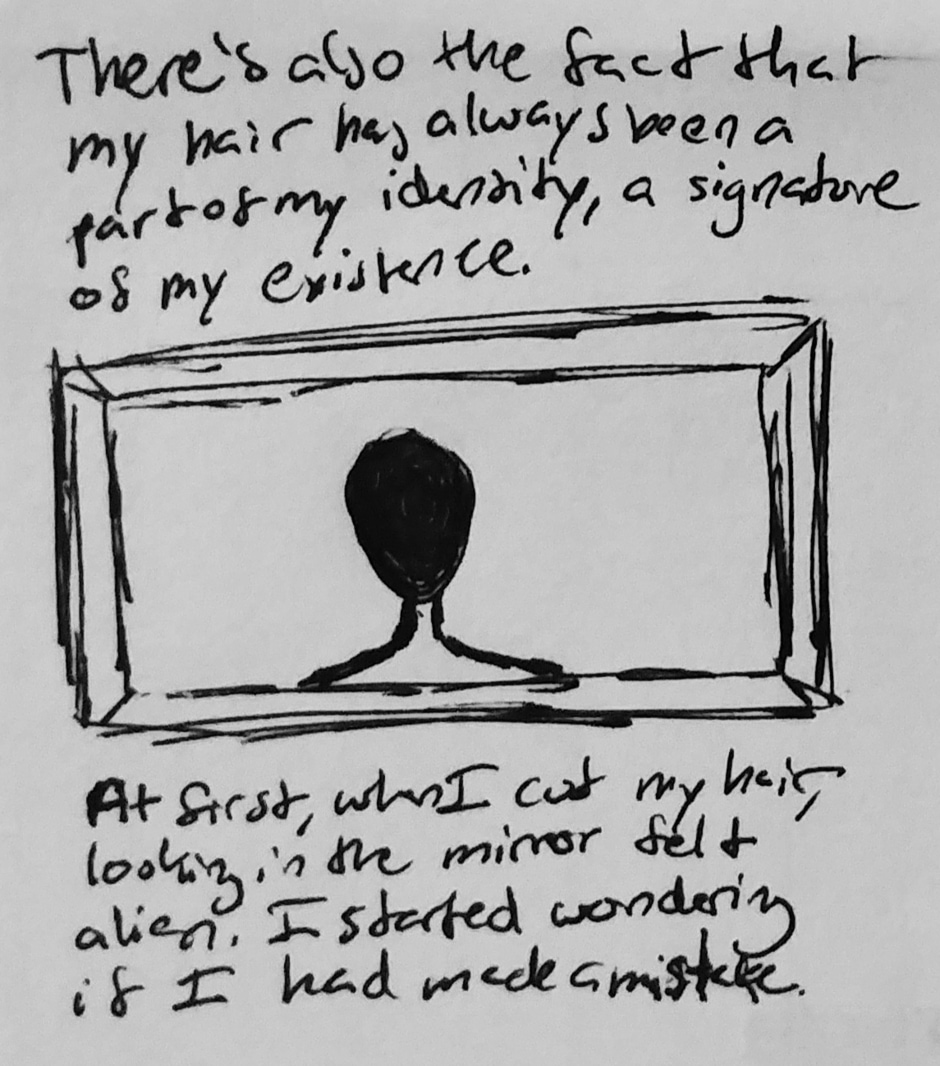 There's also the fact that
my hair has always been a
part of my identity, a signature
of my existence.
At first, when I cut my hair,
looking in the mirror felt
alien. I started wondering
if I had made a mistake.